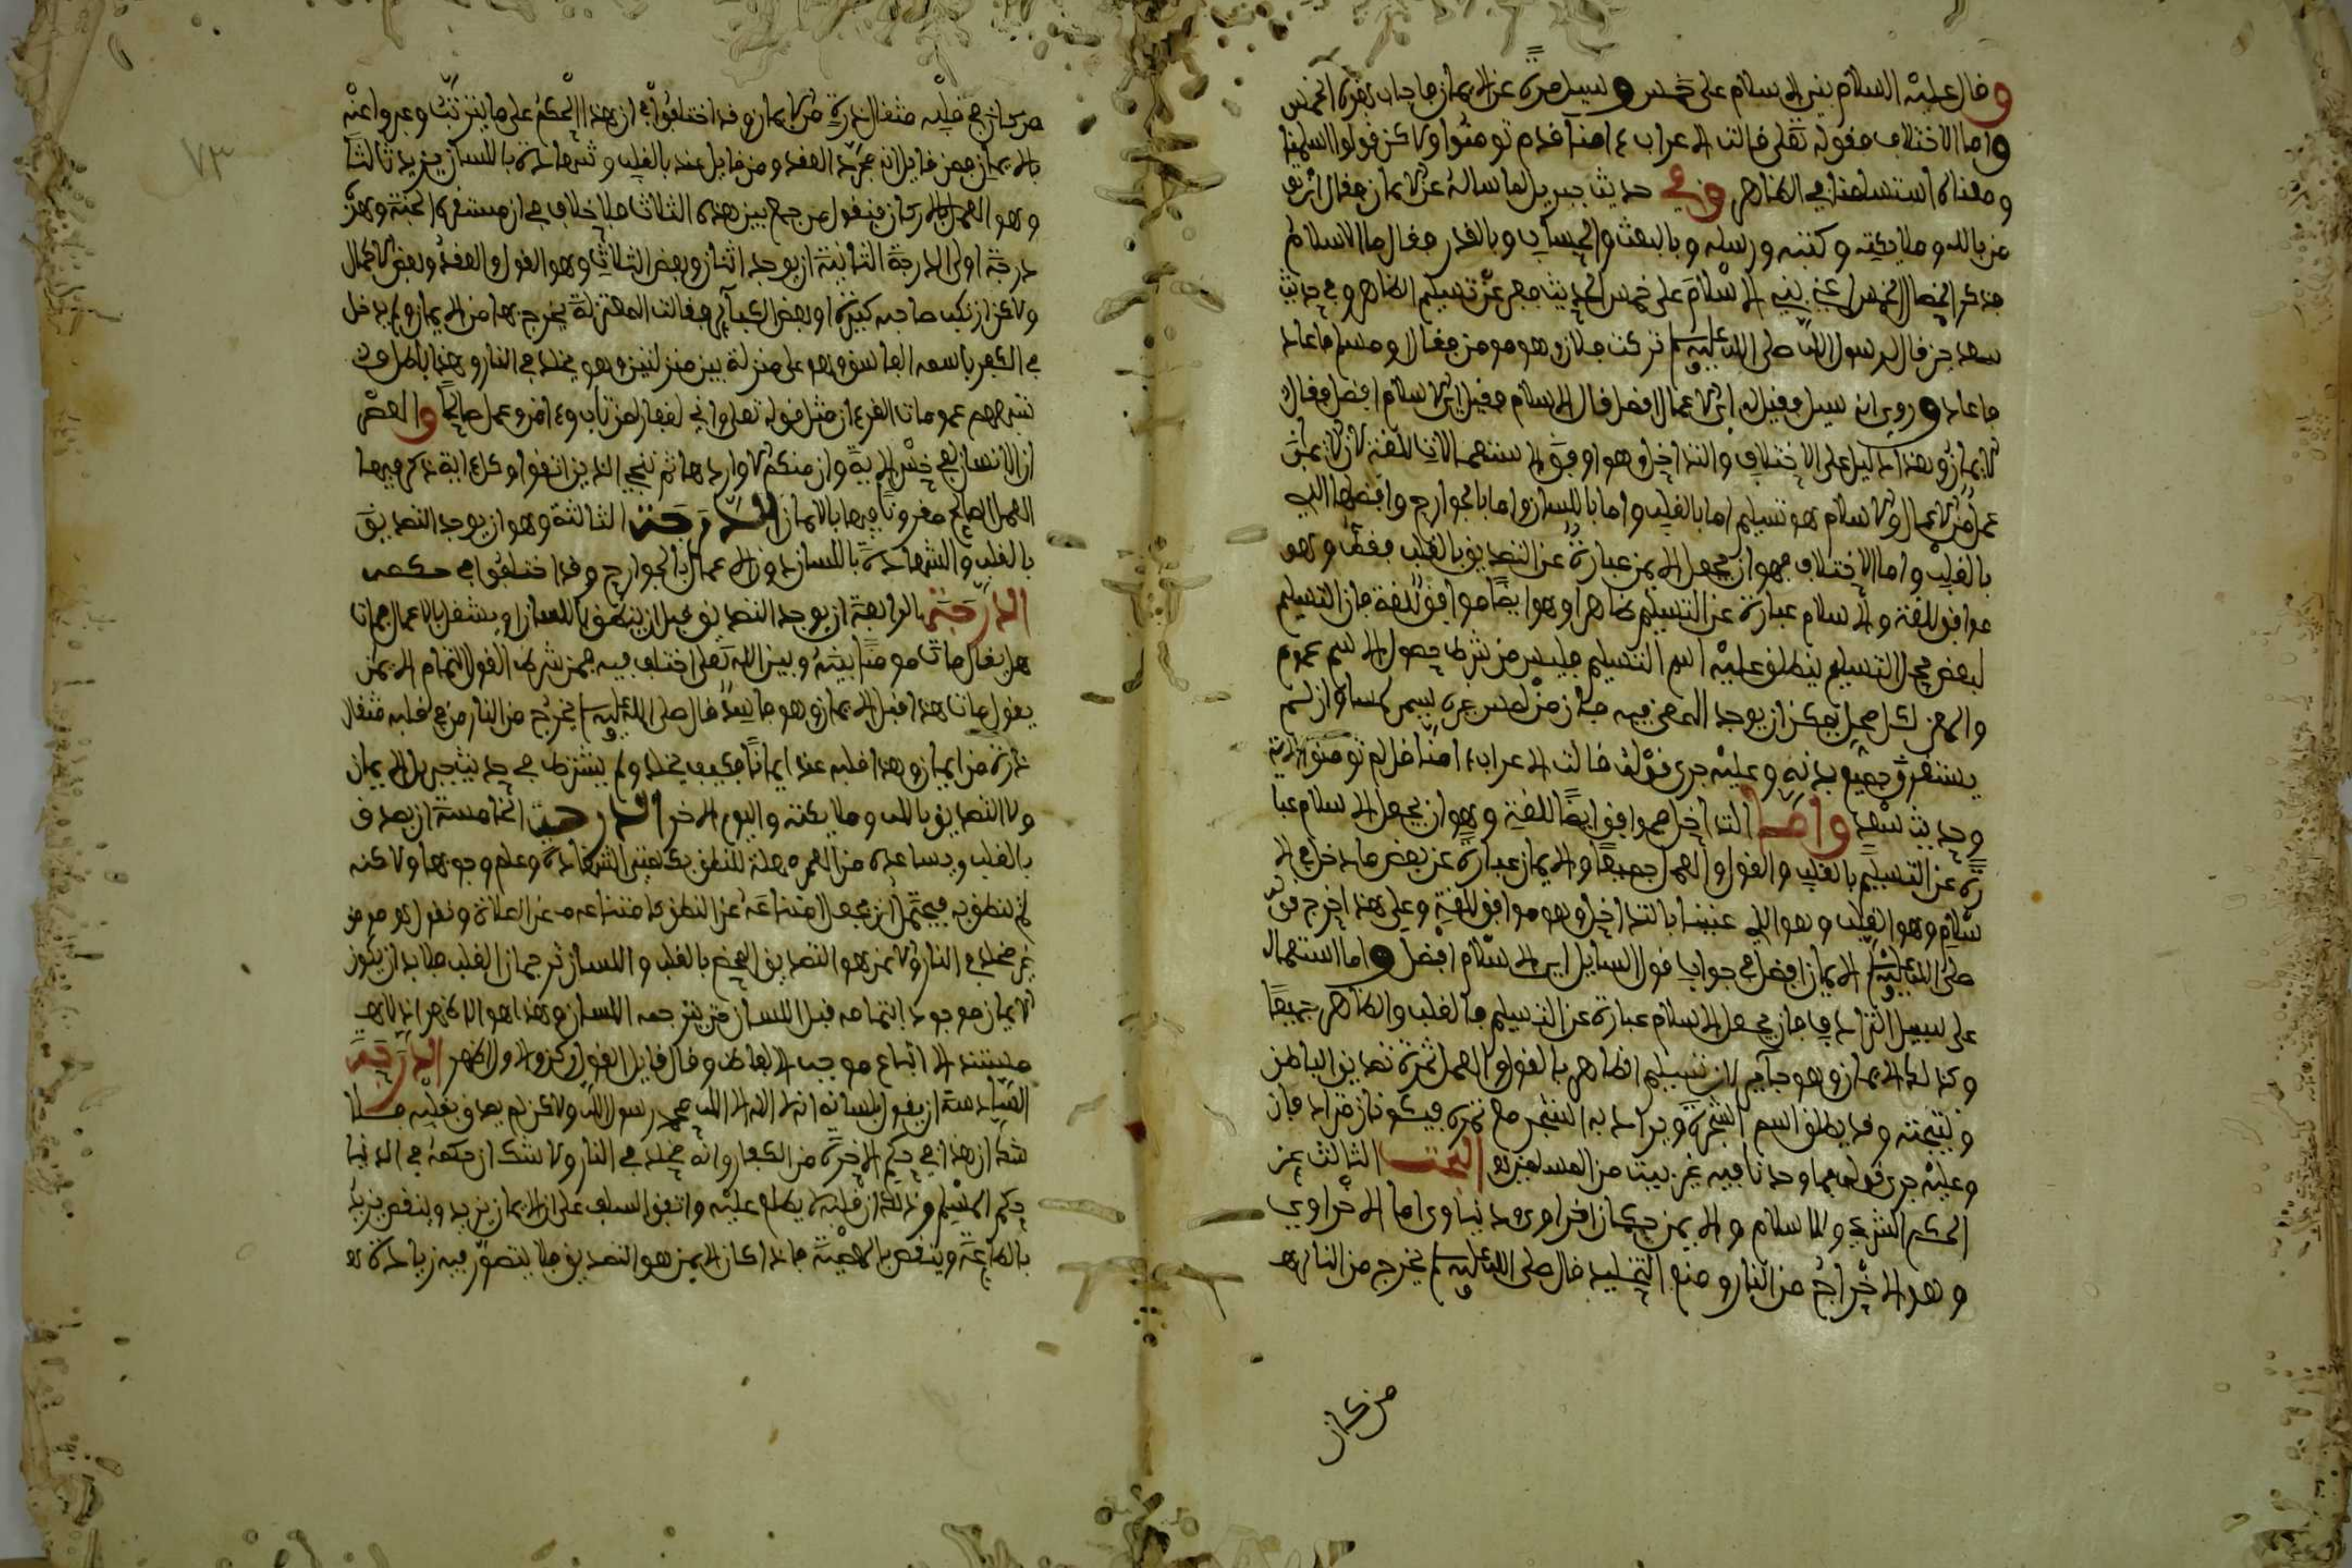 وقال عليه السلام بني الاسلام على خمس وسيل مرة عن الايمان فاجاب بهذه الخمس
واما الاختلاف فقوله تعلى قالت الاعراب ءامنا قل لم تومنوا ولاكن قولوا اسلمنا
ومعناه استسلمنا في الظاهر وفي حديث جبريل لما ساله عن الايمان فقال ان تو
من بالله وملايكته وكتبه ورسله وبالبعث والحساب وبالقدر فقال ما الاسلام
فذكر الخصال الخمس يعني بني الاسلام على خمس الحديث فعبر عن تسليم الظاهر وفي حديث
سعد حين قال لرسول الله صلى الله عليه وسلم تركت فلان وهو مومن فقال او مسلم فاعاد
فاعاد وروي انه سيل فقيل له اي الاعمال افضل قال الاسلام فقيل اي الاسلام افضل فقال
الايمان وهذا دليل على الاختلاف والتداخل وهو اوفق الاستعمالات للغة لان الايمان
عمل من الاعمال والاسلام هو تسليم اما بالقلب واما باللسان واما بالجوارح وافضلها الذي
بالقلب واما الاختلاف فهو ان يجعل الايمن عبارة عن التصديق بالقلب فقط وهو
موافق للغة والاسلام عبارة عن التسليم ظاهرا وهو ايضا موافق للغة فان التسليم
لبعض محل التسليم ينطلق عليه اسم التسليم فليس من شرط حصول الاسم عموم
والمعنى لكل محل يمكن ان يوجد المعنى فيه فان من لمس غيره يسمى لمسا وان لم
يستغرق جميع بدنه وعليه جرى قوله قالت الاعراب ءامنا قل لم تومنوا الاية
وحديث سعد واما التداخل فموافق ايضا للغة وهو ان يجعل الاسلام عبا
رة عن التسليم بالقلب والقول والعمل جميعا والايمان عبارة عن بعض ما دخل في الا
سلام وهو القلب وهو الذي عنينا بالتداخل وهو موافق للغة وعلى هذا خرج قوله
صلى الله عليه وسلم الايمان افضل في جواب قول السايل اي الاسلام افضل واما استعمال
على سبيل الترادف فان يجعل الاسلام عبارة عن التسليم بالقلب والظاهر جميعا
وكذلك الايمان وهو جايز لان تسليم الظاهر بالقول والعمل ثمرة تصديق الباطن
ونتيجته وقد يطلق اسم الشجرة ويراد به الشجر مع ثمره فيكونان مترادفان
وعليه جرى قوله فما وجدنا فيها غير بيت من المسلمين البحث الثالث عن
الحكم الشرعي وللاسلام والايمن حكمان اخراوي ودنياوي اما الاخراوي
وهو الاخراج من النار ومنع التخليد قال صلى الله عليه وسلم يخرج من النار
من كان
من كان في قلبه مثقال ذرة من الايمان وقد اختلفوا في ان هذا الحكم على ما يترتب وعبروا عنه
بالايمان فمن قايل انه مجرد العقد ومن قايل عقد بالقلب وشهادة باللسان يزيد ثالثا
وهو العمل بالاركان فنقول من جمع بين هذه الثلاث فلا خلاف في ان مستقره الجنة وهذه
درجة اولى الدرجة الثانية ان يوجد اثنان وبعض الثالث وهو القول والعقد وبعض الاعمال
ولاكن ارتكب صاحبه كبيرة او بعض الكباير فقالت المعتزلة يخرج بها من الايمان ولم يدخل
في الكفر باسمه الفاسق وهو على منزلة بين منزلتين وهو يخلد في النار وهذا باطل
شبههم عمومات القرءان مثل قوله تعلى واني لغفار لمن تاب وءامن وعمل صالحا والعصر
ان الانسان لفي خسر الاية وان منكم الا واردها ثم ننجي الذين اتقوا وكل ءاية ذكر فيها
العمل الصالح مقرونا فيها بالايمان الدرجة الثالثة وهو ان يوجد التصديق
بالقلب والشهادة باللسان دون الاعمال بالجوارح وقد اختلفوا في حكمه
الدرجة الرابعة ان يوجد التصديق قبل ان ينطق باللسان او يشتغل بالاعمال فمات
هل يقال مات مومنا بينه وبين الله تعلى اختلف فيه فمن شرط القول لتمام الايمن
يقول مات هذا قبل الايمان وهو فاسد قال صلى الله عليه وسلم يخرج من النار من في قلبه مثقال
ذرة من ايمان وهذا قلبه عقد ايمانا فكيف يخلد ولم يشترط في حديث جبريل الايمان
ولا التصديق بالله وملايكته واليوم الاخر الدرجة الخامسة ان يصدق
بالقلب ويساعده من العمر مهلة للنطق بكلمتي الشهادة وعلم وجوبها ولاكنه
لم ينطق به فيحتمل ان يجعل امتناعه عن النطق كامتناعه من عن الصلاة ونقول هو مومن
غير مخلد في النار والايمن هو التصديق المحض بالقلب واللسان ترجمان القلب فلا بد ان يكون
الايمان موجودا بتمامه قبل اللسان حتى يترجمه اللسان وهذا هو الاظهر اذ لا
مستند الا اتباع موجب الالفاظ وقال قايل القول ركن والاول اظهر الدرجة
السادسة ان يقول بلسانه لا اله الا الله محمد رسول الله ولاكن لم يصدق بقلبه فلا
شك ان هذا في حكم الاخرة من الكفار وانه مخلد في النار ولا شك ان حكمه في الدنيا
حكم المسلم وذلك ان قلبه لا يطلع عليه واتفق السلف على ان الايمان يزيد وينقص يزيد
بالطاعة وينقص بالمعصية فاذا كان الايمن هو التصديق فلا يتصور فيه زيادة
٧٣